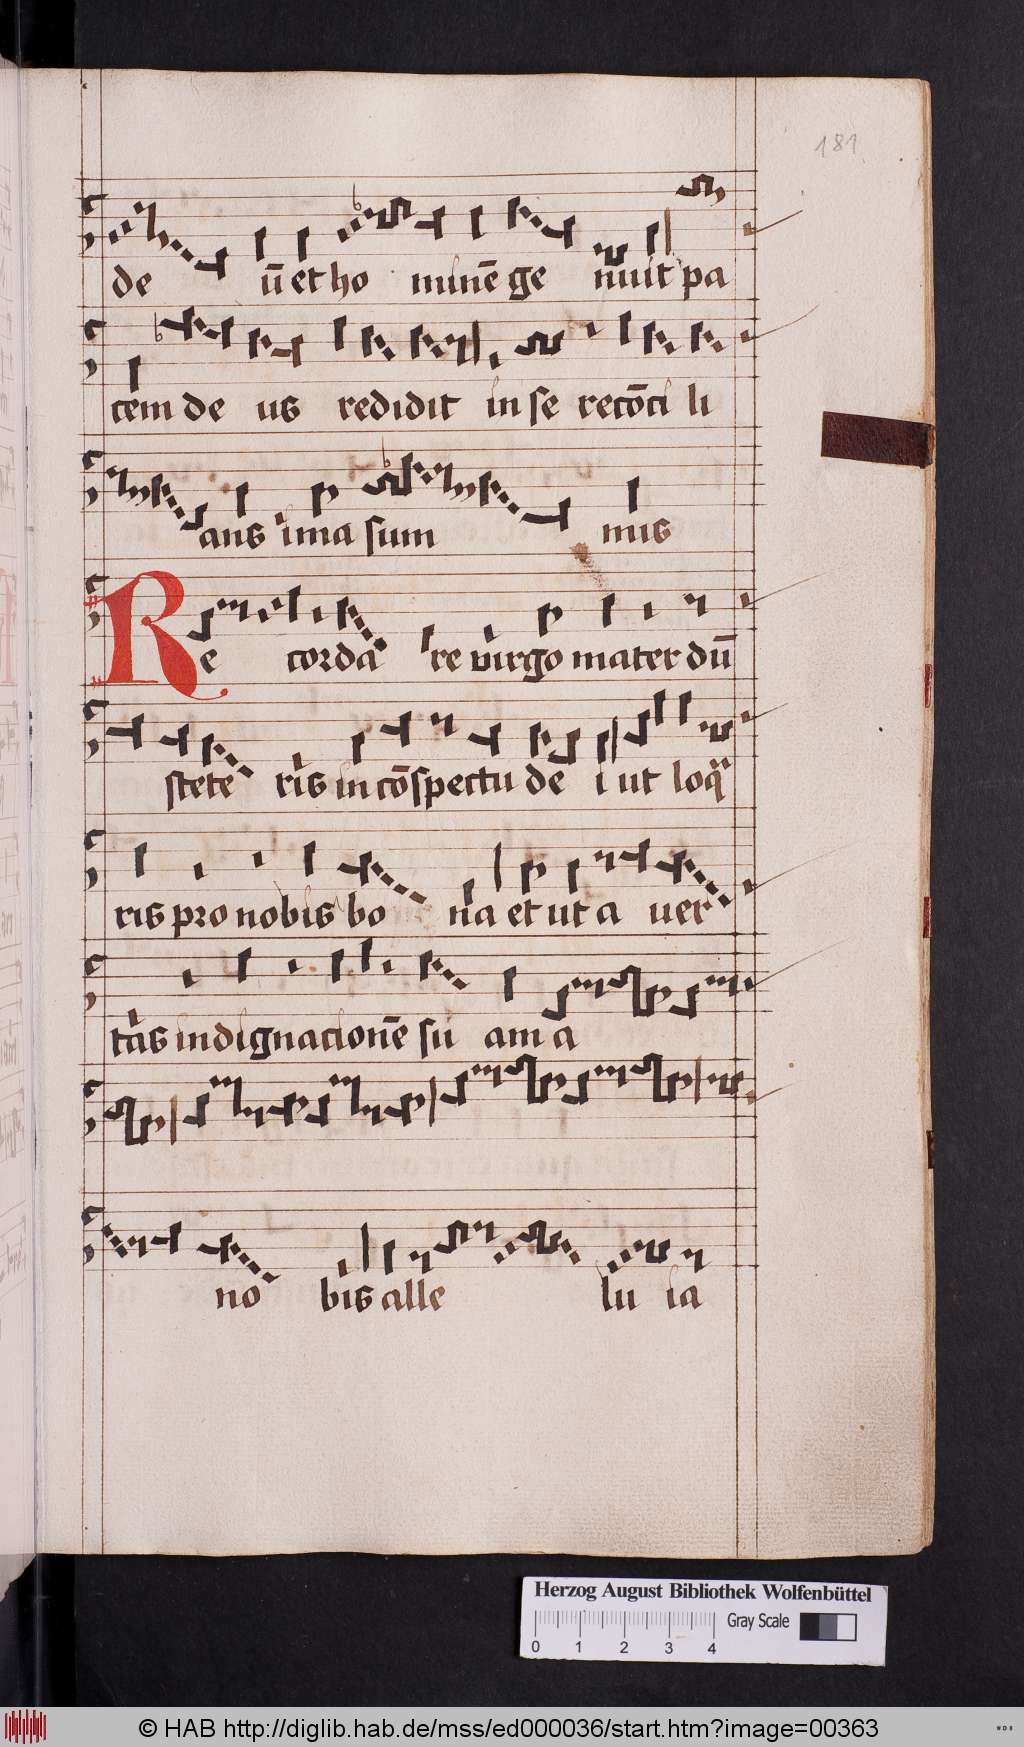 181
de ūet ho minē ge nuit pa
cem de us redidit in se recōci li
ans ima sum mis
Re corda re virgo mater dū
stete ris in cōspectu de i ut loqͣ
ris pro nobis bo na et ut a ver
tas indignacionē su am a
no bis alle lu ia
Herzog August Bibliothek Wolfenbüttel
0 1 2 3 4 Gray Scale
© HAB http://diglib.hab.de/mss/ed000036/start.htm?image=00363